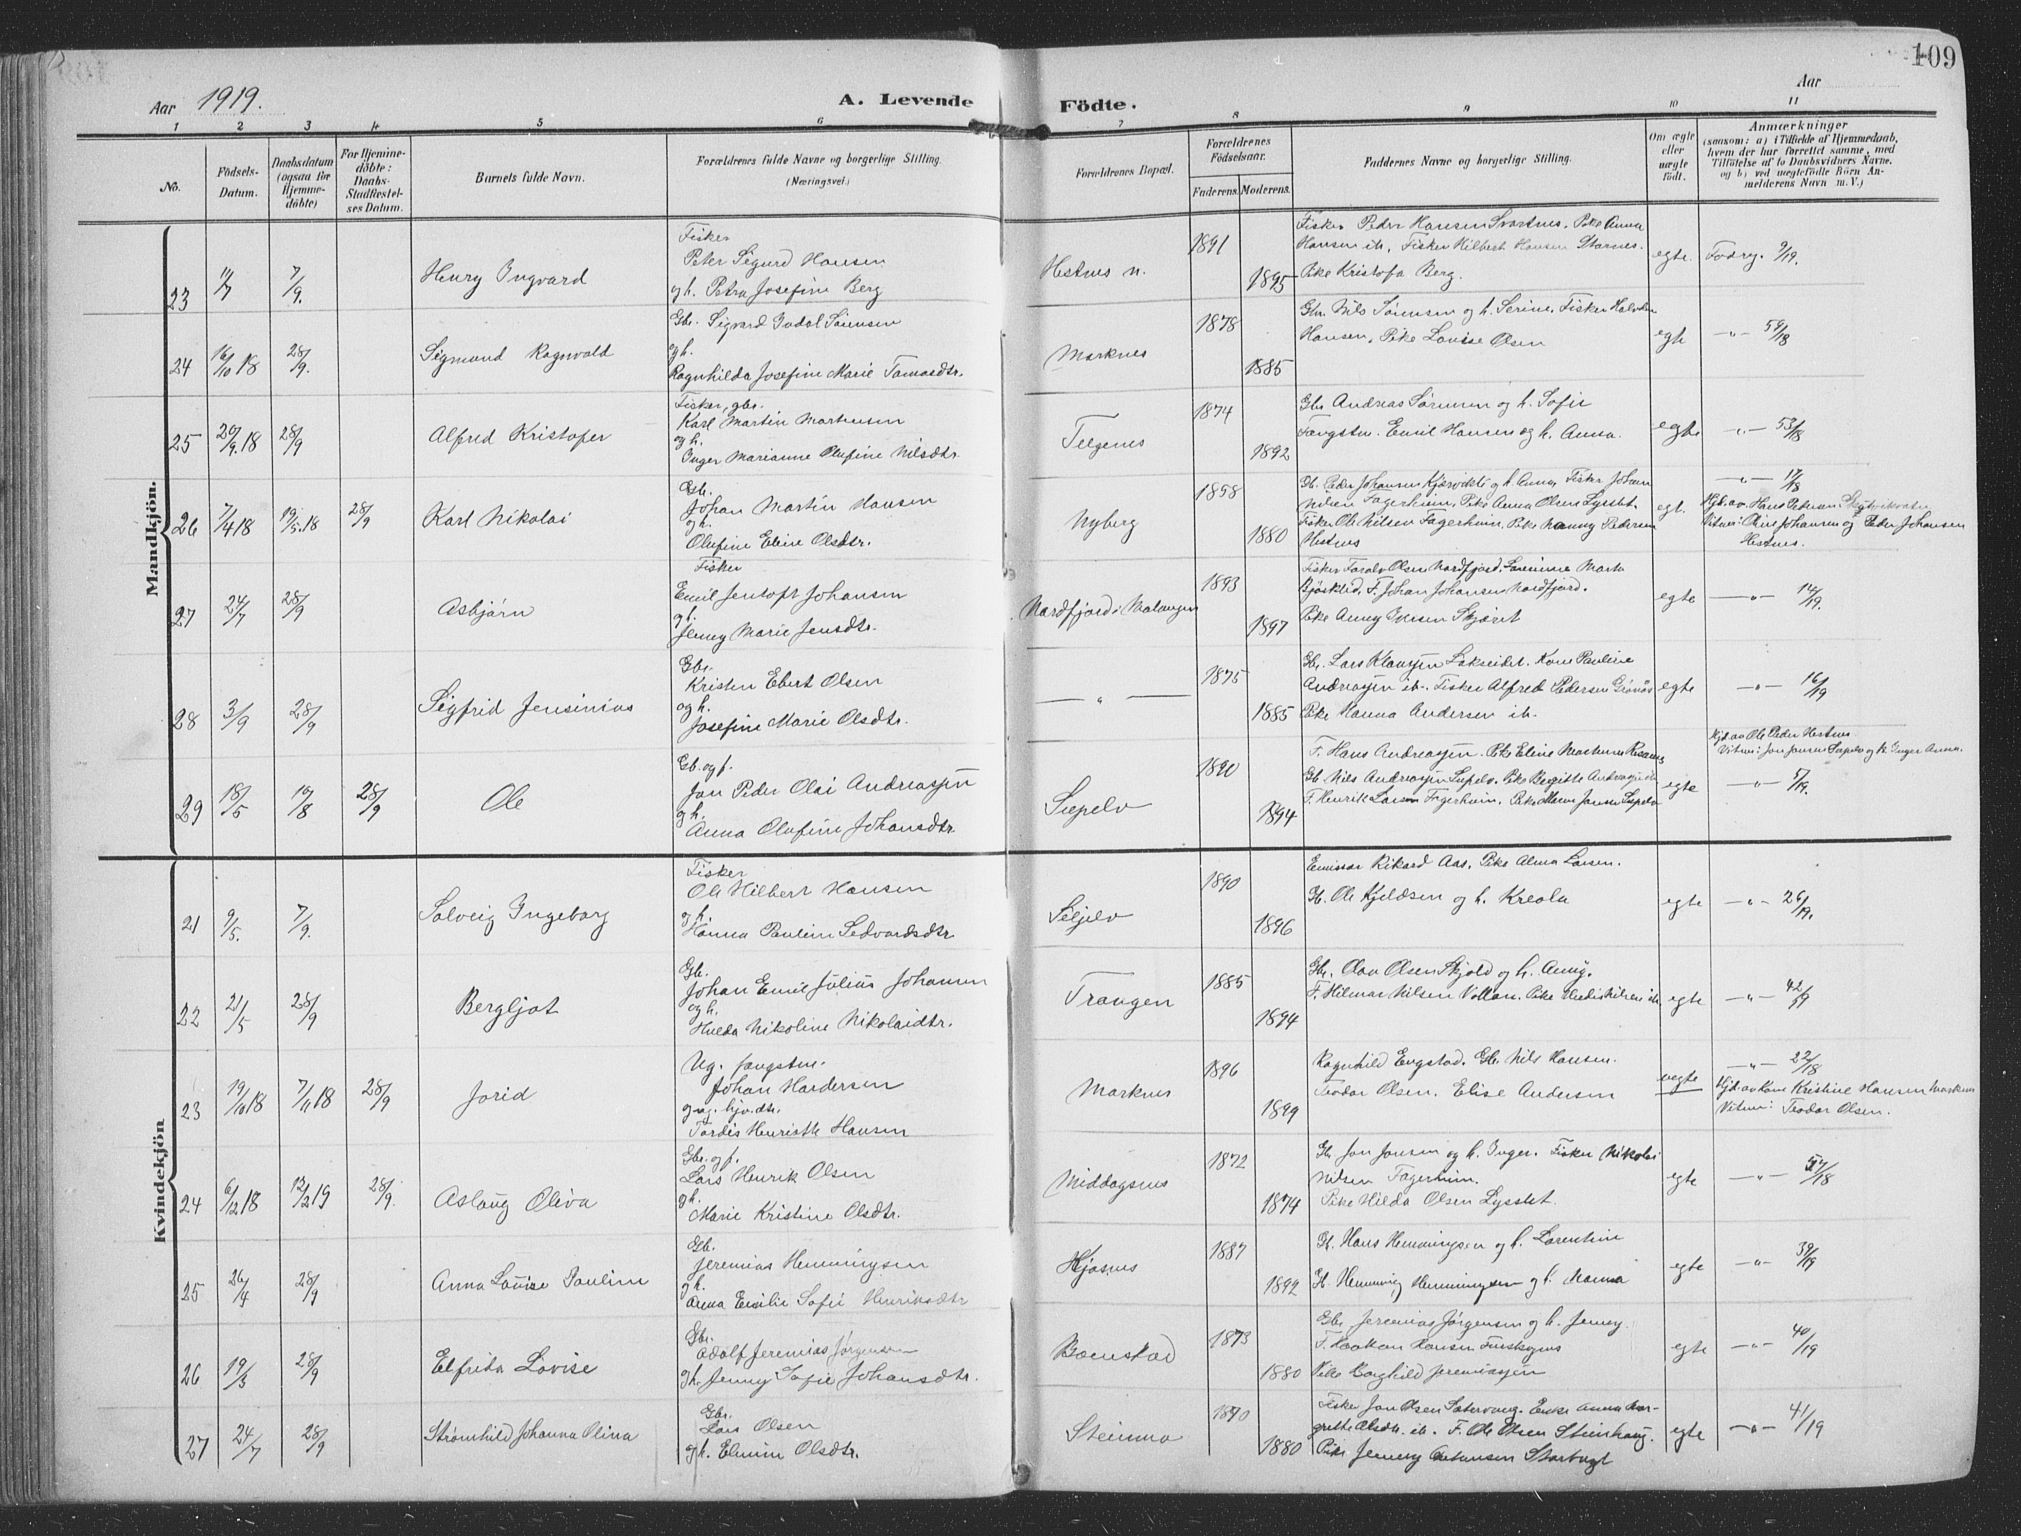 109
Aar 1919.
A. Levende Födte.
Aar
1 2 3 4 5 6 7 8 9 10 11
No.
Födsels-Datum.
Daabsdatum (ogsaa for Hjemmedöbte)
For Hjemmedöbte: Daabs-Stadfæstelses Datum.
Barnets fulde Navn.
Forældrenes fulde Navne og borgerlige Stilling.
(Næringsvei.)
Forældrenes Bopæl.
Forældrenes Födselsaar.
Faderens. Moderens.
Faddernes Navne og borgerlige Stilling.
Om ægte eller uægte födt.
Anmærkninger
(saasom: a) i Tilfælde af Hjemmedaab, hvem der har forrettet samme, med Tilföielse af to Daabsvidners Navne. og b) ved uægtefödte Börn Anmelderens Navn m. V.)
Mandkjön.
Fisker
Peter Sigurd Hansen
og h. Petra Josefine Berg
23 7/9. Henry Ingvard
Hestnes n. 1891 1895
Fisker Peder Hansen Svartnes. Pike Anna
Hansen ib. Fisker Hilbert Hansen Starnes.
Pike Kristofa Berg.
egte. Fødrg. 9/19.
24 16/10 18 28/9. Sigmund Ragnvald
Gbr. Sigvard Indal Sørensen
og h.
Ragnhilda Josefine Marie Tomasdtr.
Marknes 1878 1885
Gbr. Nils Sørensen og h. Serine. Fisker Halvdan
Hansen, Pike Lovise Olsen
egte -"- 59/18
25 20/9.18 28/9 Alfred Kristofer
Fisker, gbr.
Karl Martin Martinsen
og h.
Inger Marianne Olufine Nilsdtr.
Tølgenes 1874 1892
Gbr Andreas Sørensen og h. Sofie
Fangstm. Emil Hansen og h. Anna.
egte -"- 53/18
26 7/4 18 19/5.18 28/9 Karl Nikolai
Gb.
Johan Martin Hansen
og h.
Olufine Eline Olsdtr.
Nyberg 1858 1880
Gb. Peder Johansen og h. Anna, Fisker Johan
Nilsen Fagerheim, Pike Anna Olsen Lysslet.
Fisker Ole Nilsen Fagerheim. Pike Nanny Pedersen
Hestnes
egt. -"- 17/18
Hjd. av. Hans Pedersen
Vitner: Johansen og Peder Johansen
Hestnes.
27 24/7 28/9 Asbjørn
Fisker
Emil Jentoft Johansen
og h.
Jenny Marie Jensdtr.
Nordfjord i Malangen 1893 1897
Fisker Olsen Nordfjord. Marta
F. Johan Johansen Nordfjord.
Pike Anny Iversen Skjæret
egte -"- 14/19.
28 3/9 28/9 Sigfrid Jensinius
Gbr.
Kristen Ebert Olsen
og h.
Josefine Marie Olsdtr.
-"- 1875 1885
Gbr. Lars Klausjen Lakseidet. Kone Pauline
Andreasjen ib. Fisker Alfred Pedersen Grønås
Pike Hanna Andersen ib.
egte -"- 16/19
29 18/5 28/9 Ole
Gb. og f.
Jon Peder Olai Andreasjen
og h.
Anna Olufine Johansdtr.
Sepelv 1890 1894
F. Hans Andreasjen. Pike Eline
Gb. Nils Andreasjen Sepelv. Pike Bergitte Andreasjen ib
F. Henrik Larsen Fagerheim. Pike Jensen Sepelv
egte
Hjd. av Ole Peder Hestnes
Vitner: Jon Jensen Sepelv og h. Inger Anna.
-"- 5/19.
Kvindekjön
21 9/5. 7/9. Solveig Ingeborg
Fisker
Ole Hilbert Hansen
og h.
Hanna Pauline Sedvardsdtr.
Seljelv 1890 1896
Emissær Rikard Aas. Pike Alma Larsen.
Gb. Ole Kjeldsen og h. Kreola
egte -"- 26/19.
22 21/5 28/9 Bergljot
Gb.
Johan Emil Julius Johansen
og h.
Hulda Nikoline Nikolaidtr.
Trangen 1885 1894
Gbr. Olav Olsen Skjold og h. Anny.
F. Hilmar Nilsen Vollan. Pike Nilsen ib
egte -"- 42/19
23 19/10 18 7/11 18 28/9 Jorid
Ug. fangstm.
Johan Hardersen
og ug. hjv. dtr.
Tordis Henriette Hansen
Marknes 1896 1899
Ragnhild Engstad. Gb. Nils Hansen.
Teodor Olsen. Elise Andersen
uegte -"- 22/18
Hjd. av Kone Kristine Hansen Marknes
Vitner: Teodor Olsen.
24 6/12 18 12/2 19 28/9. Aslaug Oliva
Gbr. og f.
Lars Henrik Olsen
og h.
Marie Kristine Olsdtr.
Middagsnes 1872 1874
Gb. Jon Jonsen og h. Inger. Fisker Nikolai
Nilsen Fagerheim.
Pike Hilda Olsen Lysslet.
egte -"-
25 26/4 28/9 Anna Lovise Pauline
Gb.
Jeremias Hemmingsen
og h.
Anna Emilie Sofie Henriksdtr.
Hjosnes 1887 1892
Gb. Hans Hemmingsen og h. Lorentine
Gb. Hemming Hemmingsen og h. Marina
egte -"- 39/19
26 19/3 28/9 Elfrida Lovise
Gbr.
Adolf Jeremias Jørgensen
og h. Jenny Sofie Johansdtr.
Bomstad 1873 1880
Gbr Jeremias Jørgensen og h. Jenny.
F. Haakon Hansen
Pike Borghild Jeremiasjen
egte -"- 40/19
27 24/7 28/9 Strømhild Johanna Olina
Gbr.
Lars Olsen
og h. Elmine Olsdtr.
Steinmo 1890 1880
Fisker Jon Olsen Enke Anna Mar-
grethe Olsdtr. ib. F. Ole Olsen Steinhaug.
Pike Jenny Antonsen Storbugt
egte -"- 41/19